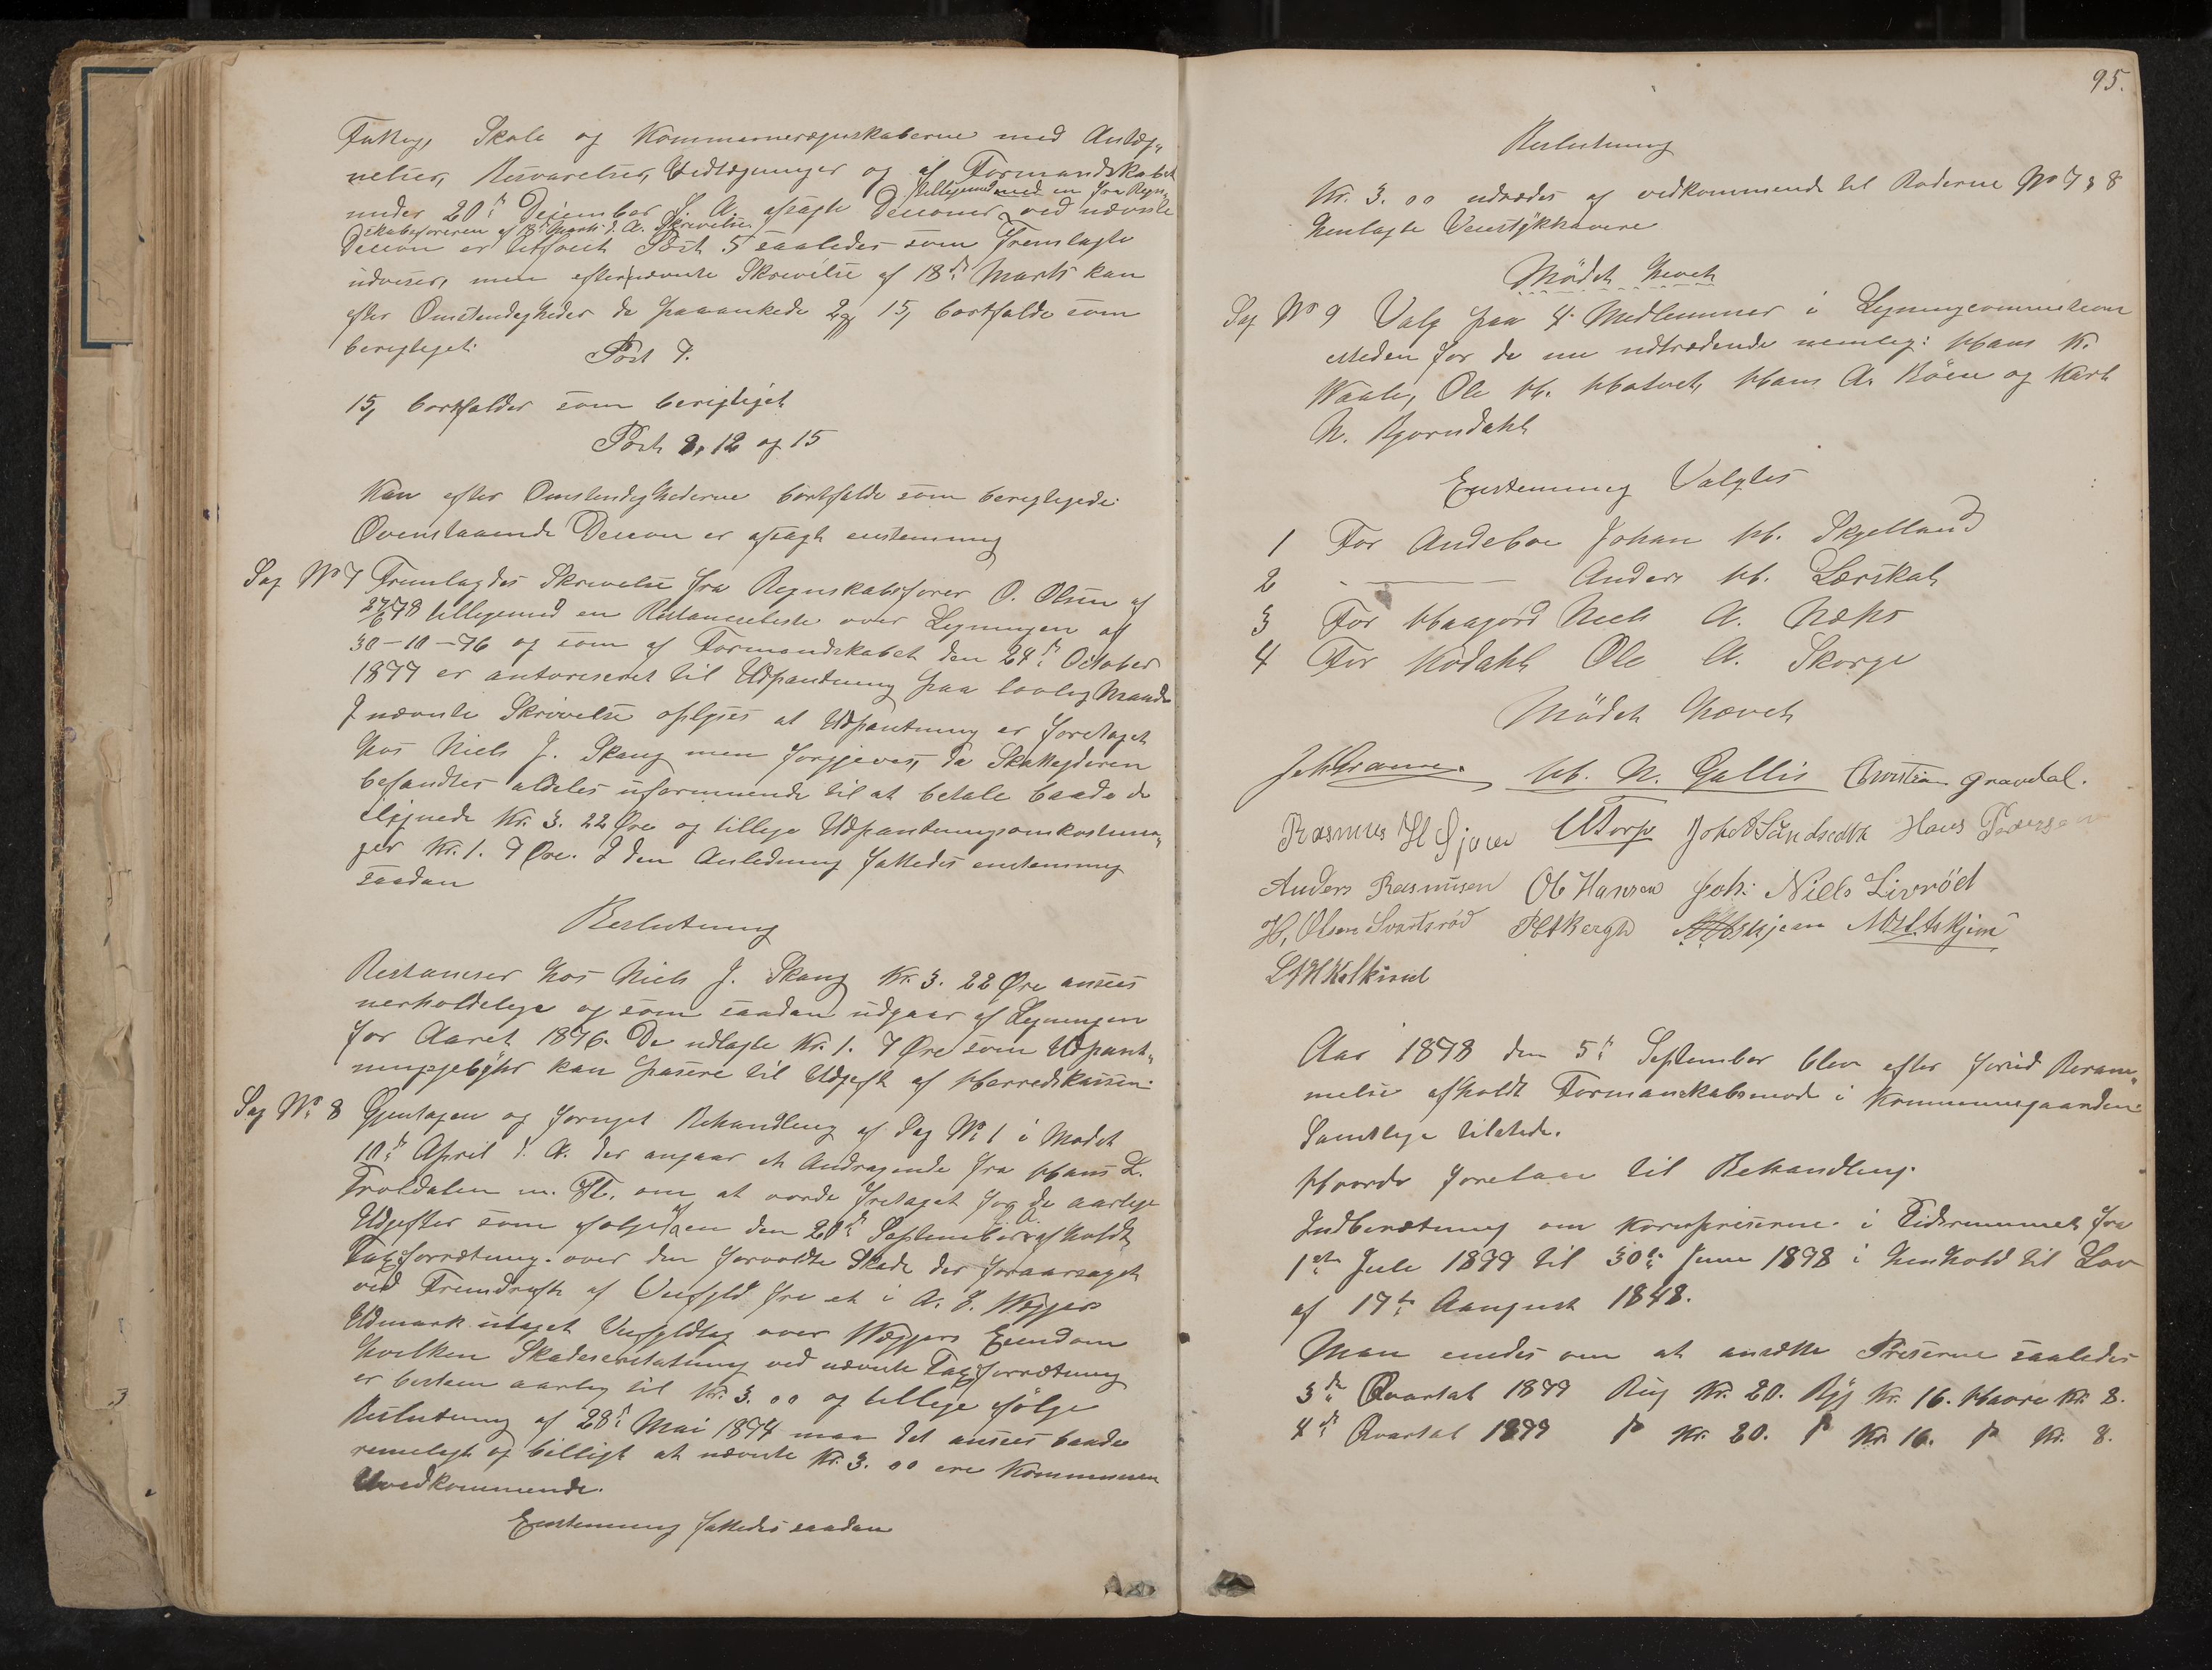 Fattig, Skole og Kommuneregnskaberne med Antæg„
nelser, Besvarelser, Vedtegninger og af Formandskabet
tilligemed med en fra Regn„
under 20de Desember f. A. afsagte Desisioner ved nævnte
skabsføreren af 18de Marts d. A. Skrivelse
Desision er Udfaldt Post 5 saaledes som Fremlagte
udviser, men efter nævnte Skrivelse af 18de Marts kan
efter Omstendigheder de paaankede 2 og 15, bortfalde som
berigtiget.
Post 7.
15, bortfalder som berigtiget
Post 8, 12 og 15
Kan efter Omstendighederne bortfalde som berigtigede
Ovenstaaende Desision er afsagt enstemmig
Sag No 7 Fremlagdes Skrivelse fra Regnskabsfører O. Olsen af
27/6 78 tilligemed en Restanceliste over Ligningen af
30-10-76 og som af Formandskabet den 24de October
1877 er autoriseret til Udpantning paa lovlig Maade
I nævnte Skrivelse oplyses at Udpantning er foretaget
hos Niels J. Skaug men forgjeves, da Skatteyderen
befandtes aldeles uformuende til at betale baade de
ilignede Kr. 3. 22 Øre og tillige Udpantningsomkostnin„
ger Kr. 1. 7 Øre. I den Anledning fattedes enstemmig
saadan
Beslutning
Restancer hos Niels J. Skaug Kr. 3. 22 Øre ansees
uerholdelige og som saadan udgaar af Ligningen
for Aaret 1876. De udlagte Kr. 1. 7 Øre som Udpant„
ningsgebyhr kan pasere til Udgift af Herredskassen.
Sag No 8 Gjentagen og fornyet Behandling af Sag No 1 i Mødet
10de April d. A. der angaar et Andragende fra Hans L.
Troldalen m. Fl. om at vorde fritaget for de aarlige
Udgifter som følge af en den 20de September f. A. afholdt
Taxtforretning over den forvoldte Skade der foraarsaget
ved Fremdrift af Ungfeld fra et i A. E. Wegjers
Udmark utaget Ungfeldtag over Wegjers Eiendom
hvilken Skadeserstatning ved nævnte Taxtforretning
er bestem aarlig til Kr. 3. 00 og tillige ifølge
Beslutning af 28de Mai 1874 maa det ansees baade
rimeligt og billigt at nævnte Kr. 3. 00 ere Kommunen
Uvedkommende.
Enstemmig fattedes saadan
95.
Beslutning
Kr. 3. 00 udredes af vedkommende til Roderne No 7 & 8
henlagte Veistykkhavere
Mödet hævet
Sag No 9 Valg paa 4 Medlemmer i Ligningcommisionen
isteden for de nu udtrædende nemlig: Hans K.
Waale, Ole H. Hotvet, Hans A. Böen og Karl
N. Bjorndahl
Enstemmig Valgtes
1 For Andeboe Johan H. Skjelland
2 - ——— Anders H. Lerskal
3 For Haagörd Niels A. Næss
4 For Kodahl Ole A. Skorge
Mödet hævet
H. N. Gallis Christian Gravdal.
Rasmus H Gjerver UTorp Joh A Sandsedth Hans Pedersen
Anders Rasmusen Ole Hansen Joh: Niels Livröd
H, Olsen Svartsröd P H Bergh
Aar 1878 den 5te September blev efter forud Beram„
melse afholdt Formanskabsmøde i Kommunegaarden
Samtlige tilstede.
Hvorda foretaes til Behandling.
Indberætning om Kornpriserne i Tidsrummet fra
1ste Juli 1877 til 30te Juni 1878 i henhold til Lov
af 17de Aaugust 1848.
Man enedes om at ansætte Priserne saaledes
3de Qvartal 1877 Rug Kr. 20. Byg Kr. 16. Havre Kr. 8.
4de Qvartal 1877 p Kr. 20. p Kr. 16. p Kr. 8.